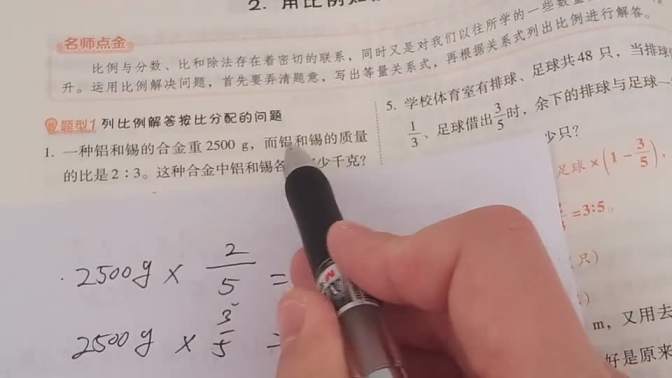 2. 用比例
名师点金
比例与分数、比和除法存在着密切的联系，同时又是对我们以往所学的一些数量
升。运用比例解决问题，首先要弄清题意，写出等量关系式，再根据关系式列出比例进行解答。
题型1 列比例解答按比分配的问题
1. 一种铝和锡的合金重 2500 g，而铝和锡的质量
的比是 2：3。这种合金中铝和锡各 少千克？
2500g × 2/5 =
2500g × 3/5 =
5. 学校体育室有排球、足球共48 只，当排球
1/3、足球借出3/5时，余下的排球与足球
少只？
足球×(1－3/5)，
=3:5。
只）
）
m，又用去
好是原来